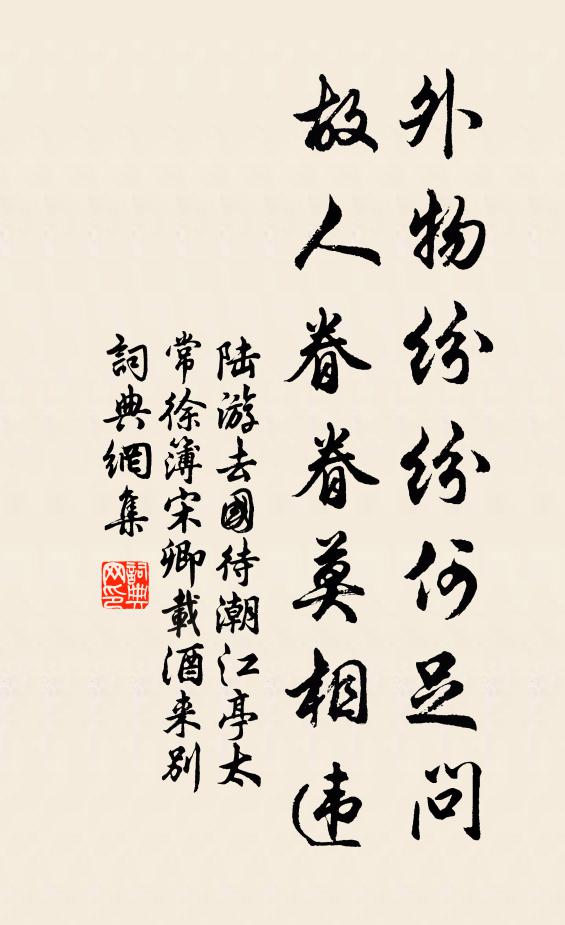 外物纷纷何足问
故人眷眷莫相违
陆游去國待潮江亭太
常徐簿宋卿載酒来别
詞典網集
詞典网印